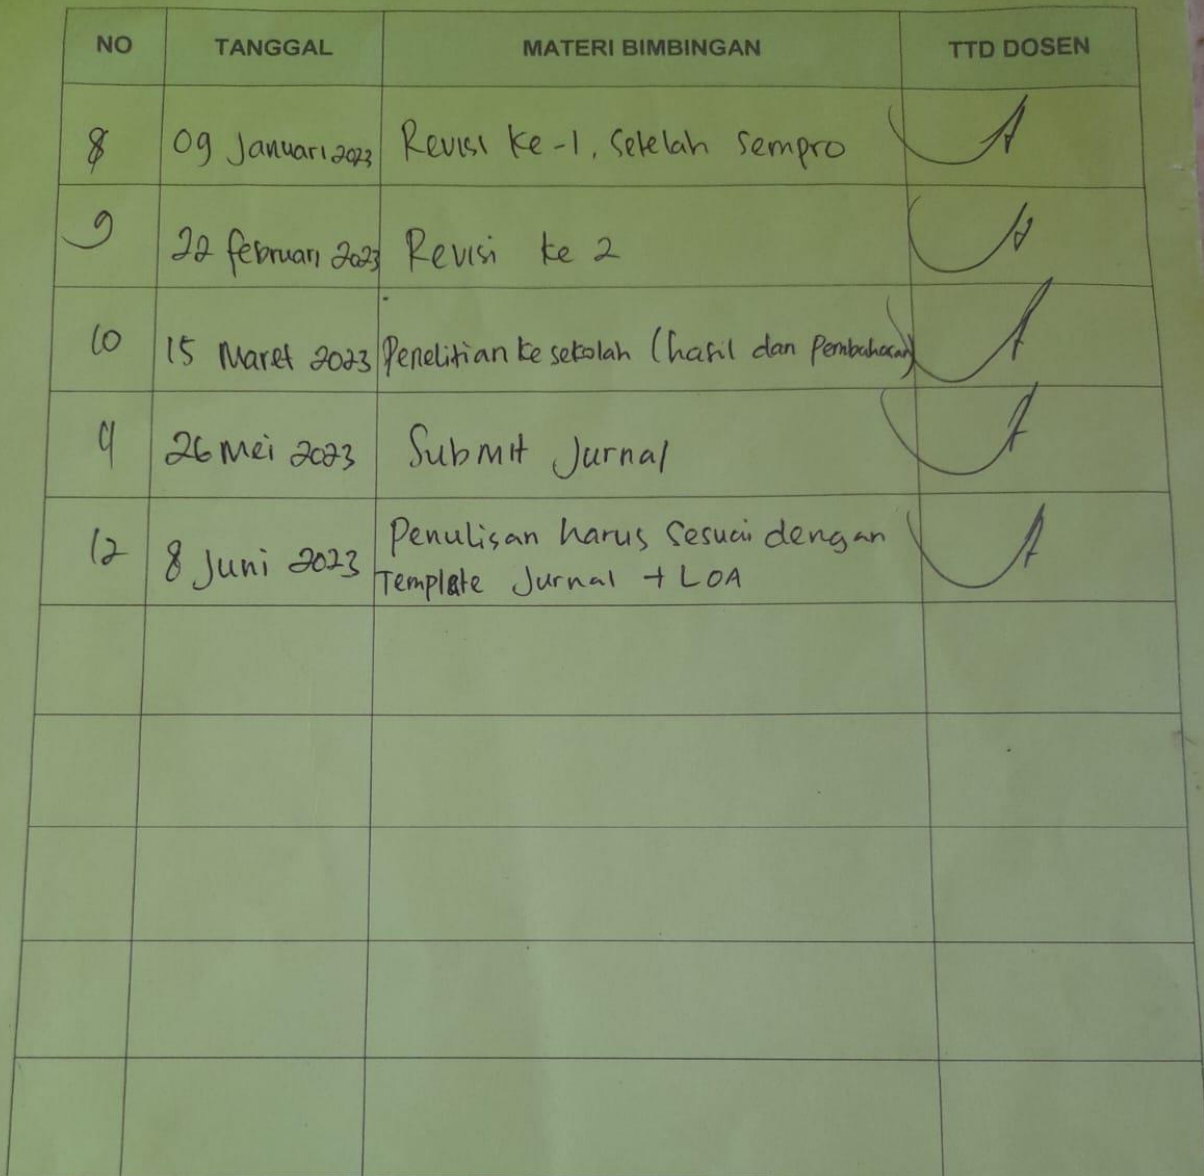 NO TANGGAL MATERI BIMBINGAN TTD DOSEN
8 09 Januari 2023 Revisi ke-1, setelah sempro
9 22 februari 2023 Revisi ke 2
10 15 Maret 2023 Penelitian ke sekolah (hasil dan Pembahasan)
11 26 Mei 2023 Submit Jurnal
12 8 Juni 2023 Penulisan harus sesuai dengan
Template Jurnal + LOA